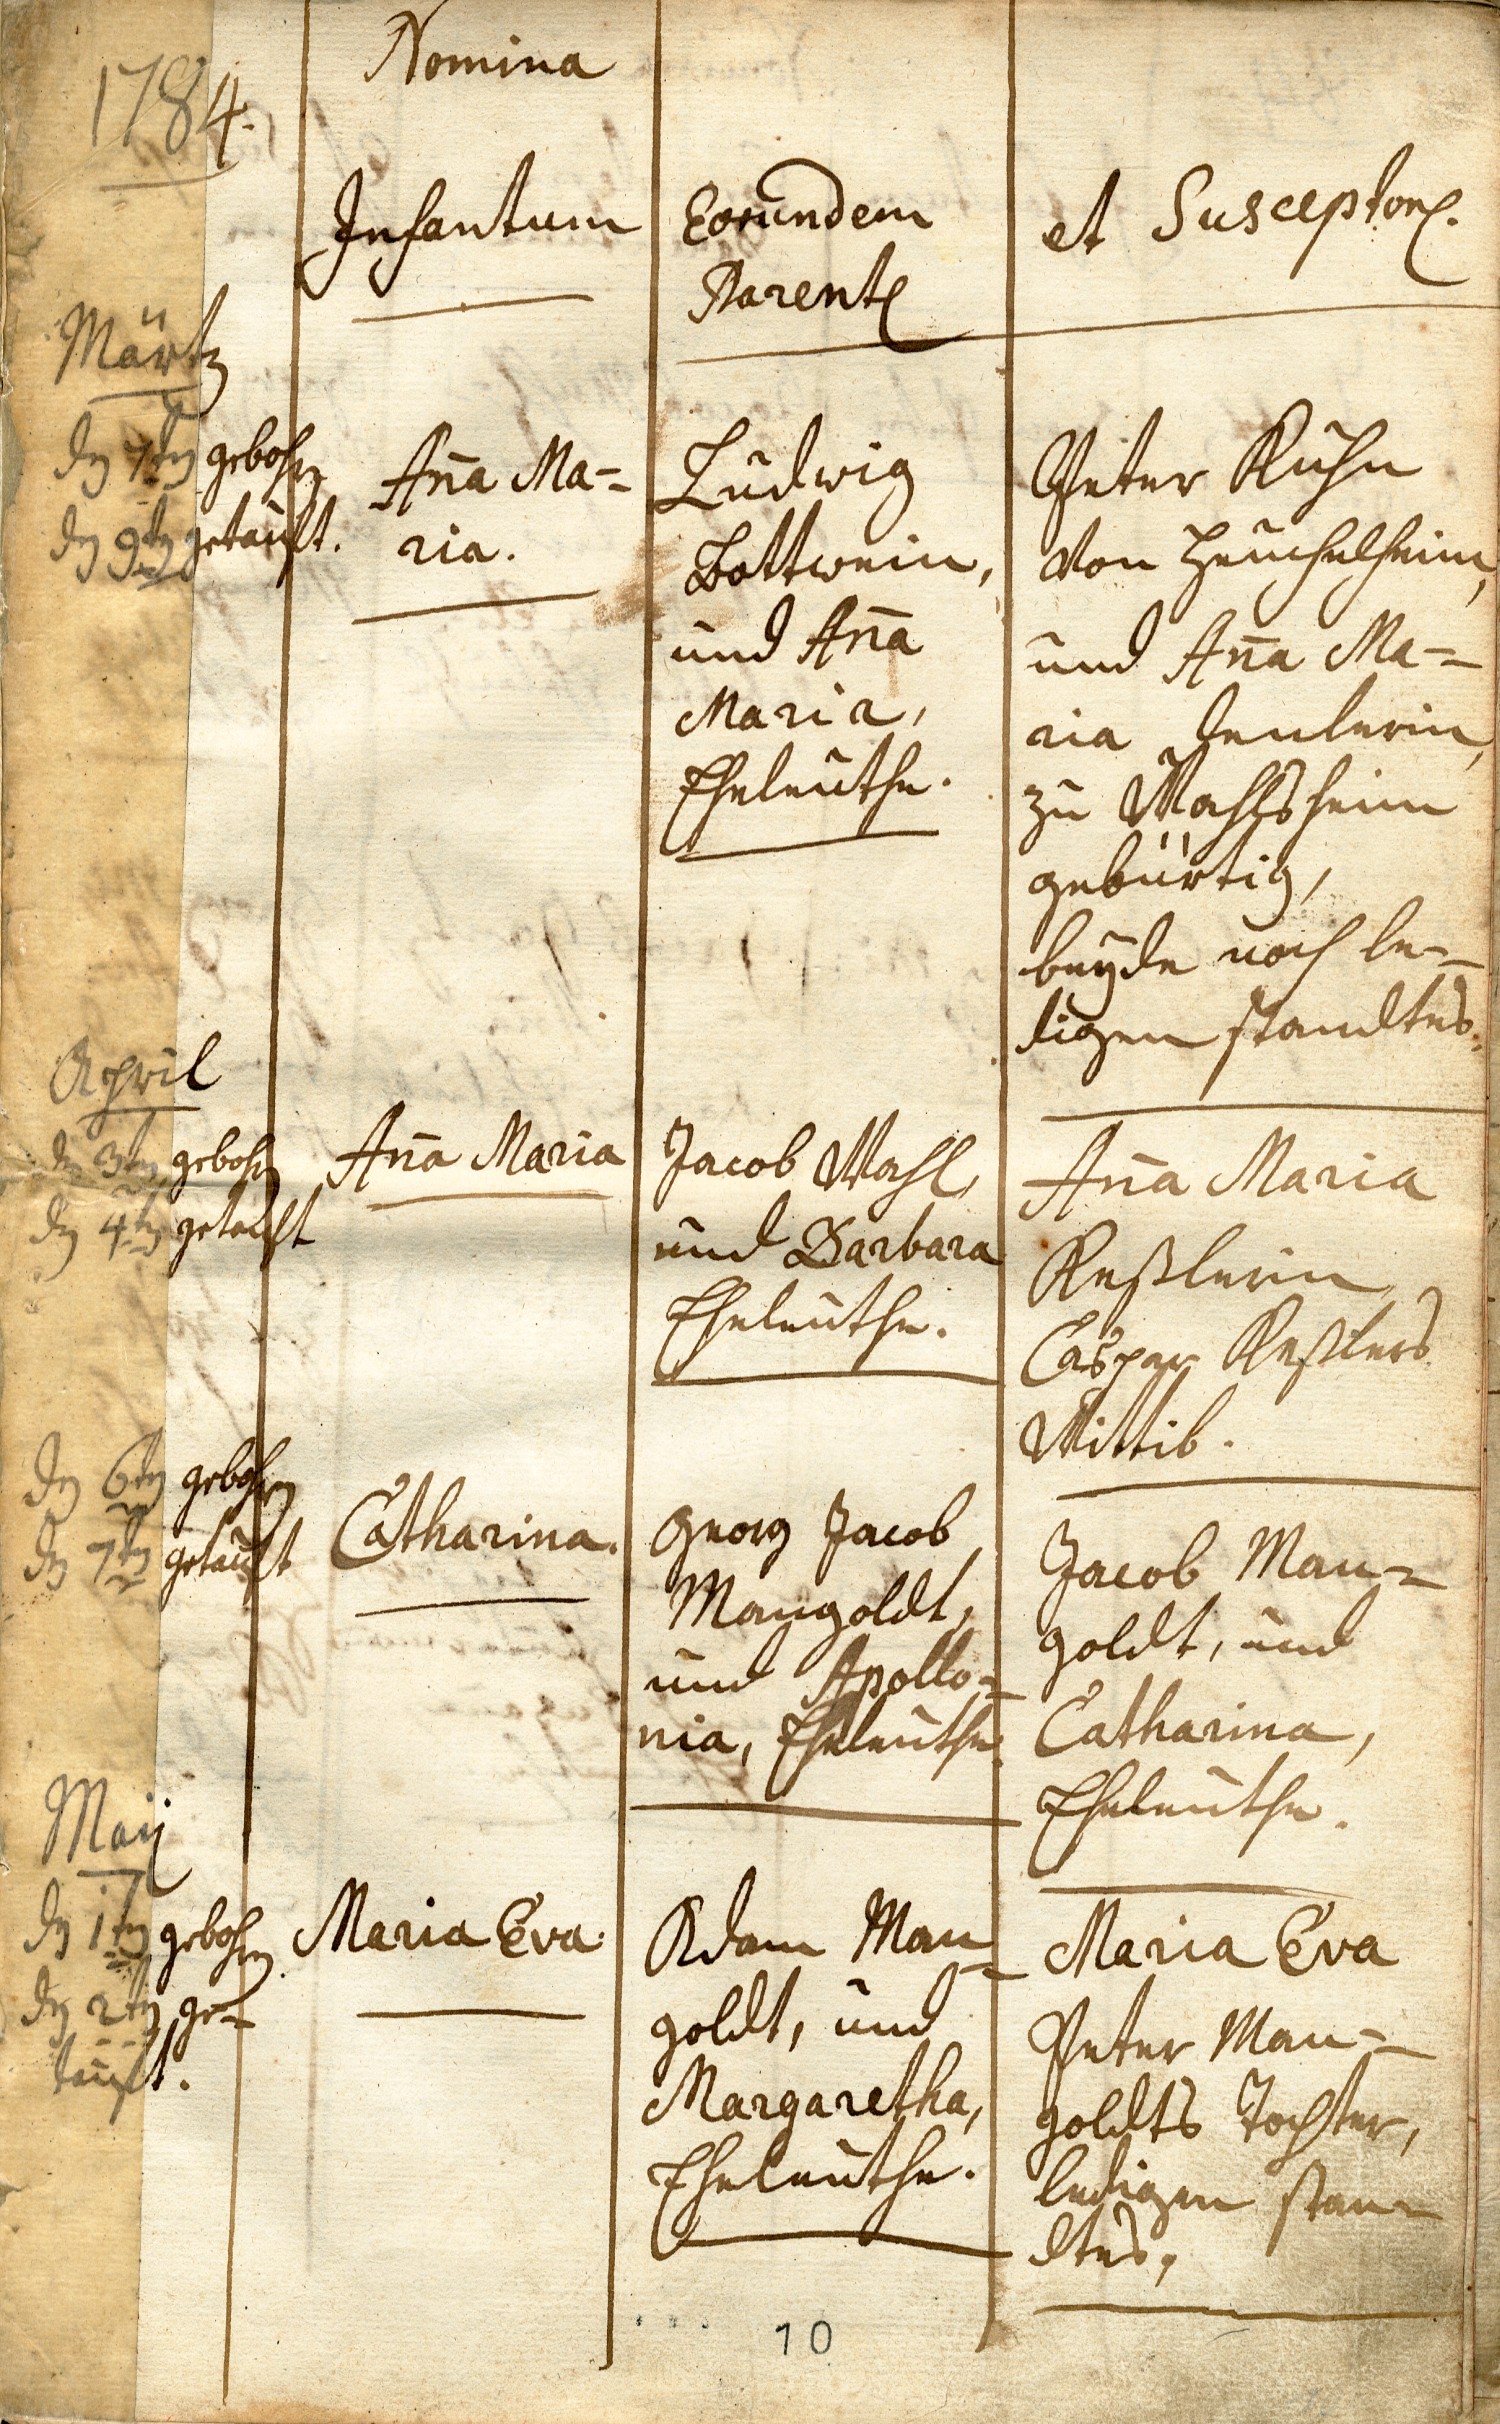 1784.
Nomina
Infantum
Eorundem
Parent
et Susceptor.
Märtz
den 7ten gebohren
den 9ten getaufft.
Aña Ma-
ria.
Ludwig
Bottwein,
und Aña
Maria,
Eheleuthe.
Peter Kuhn
von Heuchelheim,
und Aña Ma-
ria
zu Wahlsheim
gebürtig,
beyde noch le-
digen standtes.
April
den 3ten gebohren
den 4ten getaufft
Aña Maria
Jacob Wahl,
und Barbara
Eheleuthe.
Aña Maria
Keßlerin,
Caspar Keßlers
Wittib.
den 6ten gebohren
den 7ten getaufft
Catharina.
Georg Jacob
Mangoldt,
und Apollo-
nia, Eheleuthe.
Jacob Man-
goldt, und
Catharina,
Eheleuthe.
Maij
den 1ten gebohren
den 2ten ge-
taufft.
Maria Eva.
Adam Man-
goldt, und
Margaretha,
Eheleuthe.
Maria Eva
Peter Man-
goldts Tochter,
ledigen stan-
dtes,
10